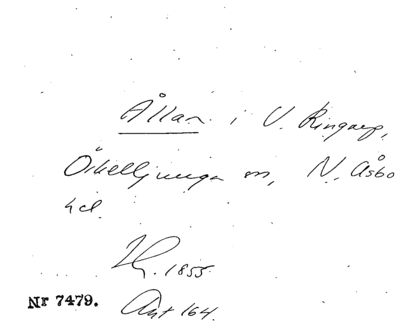 Ållan i V. Ringarp,
Örkelljunga sn, N. Åsbo
hd.
1855
Nr 7479. Ant 164.